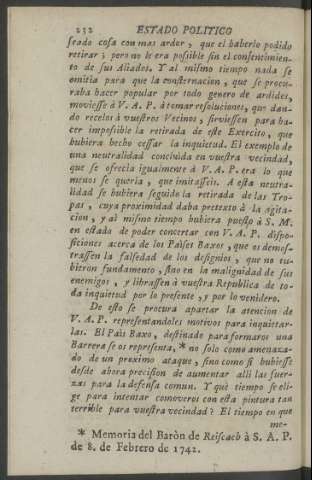 232 ESTADO POLITICO
seado cosa con mas ardor, que el haberlo podido
retirar; pero no le era possible sin el consentimien-
to de sus Aliados. Y al mismo tiempo nada se
omitia para que la consternacion, que se procu-
raba hacer popular por todo genero de ardides,
moviesse à V. A. P. à tomar resoluciones, que dan-
do recelos à vuestros Vecinos, sirviessen para ha-
cer impossible la retirada de este Exercito, que
hubiera hecho cessar la inquietud. El exemplo de
una neutralidad concluida en vuestra vecindad,
que se ofrecia igualmente à V. A. P. era lo que
menos se queria, que imitasseis. A esta neutra-
lidad se hubiera seguido la retirada de las Tro-
pas, cuya proximidad daba pretexto à la agita-
cion, y al mismo tiempo hubiera puesto à S. M.
en estado de poder concertar con V. A. P. dispo-
siciones acerca de los Paises Baxos, que os demos-
trassen la falsedad de los designios, que no tu-
bieron fundamento, sino en la malignidad de sus
enemigos, y librassen à vuestra Republica de to-
da inquietud por lo presente, y por lo venidero.
De esto se procura apartar la atencion de
V. A. P. representandoles motivos para inquietar-
las. El Pais Baxo, destinado para formaros una
Barrera se os representa, * no solo como amenaza-
do de un proximo ataque, sino como si hubiesse
desde ahora precision de aumentar alli las fuer-
zas para la defensa comun. Y què tiempo se eli-
ge para intentar comoveros con esta pintura tan
terrible para vuestra vecindad? El tiempo en que
me-
* Memoria del Baròn de Reischach à S. A. P.
de 8. de Febrero de 1742.